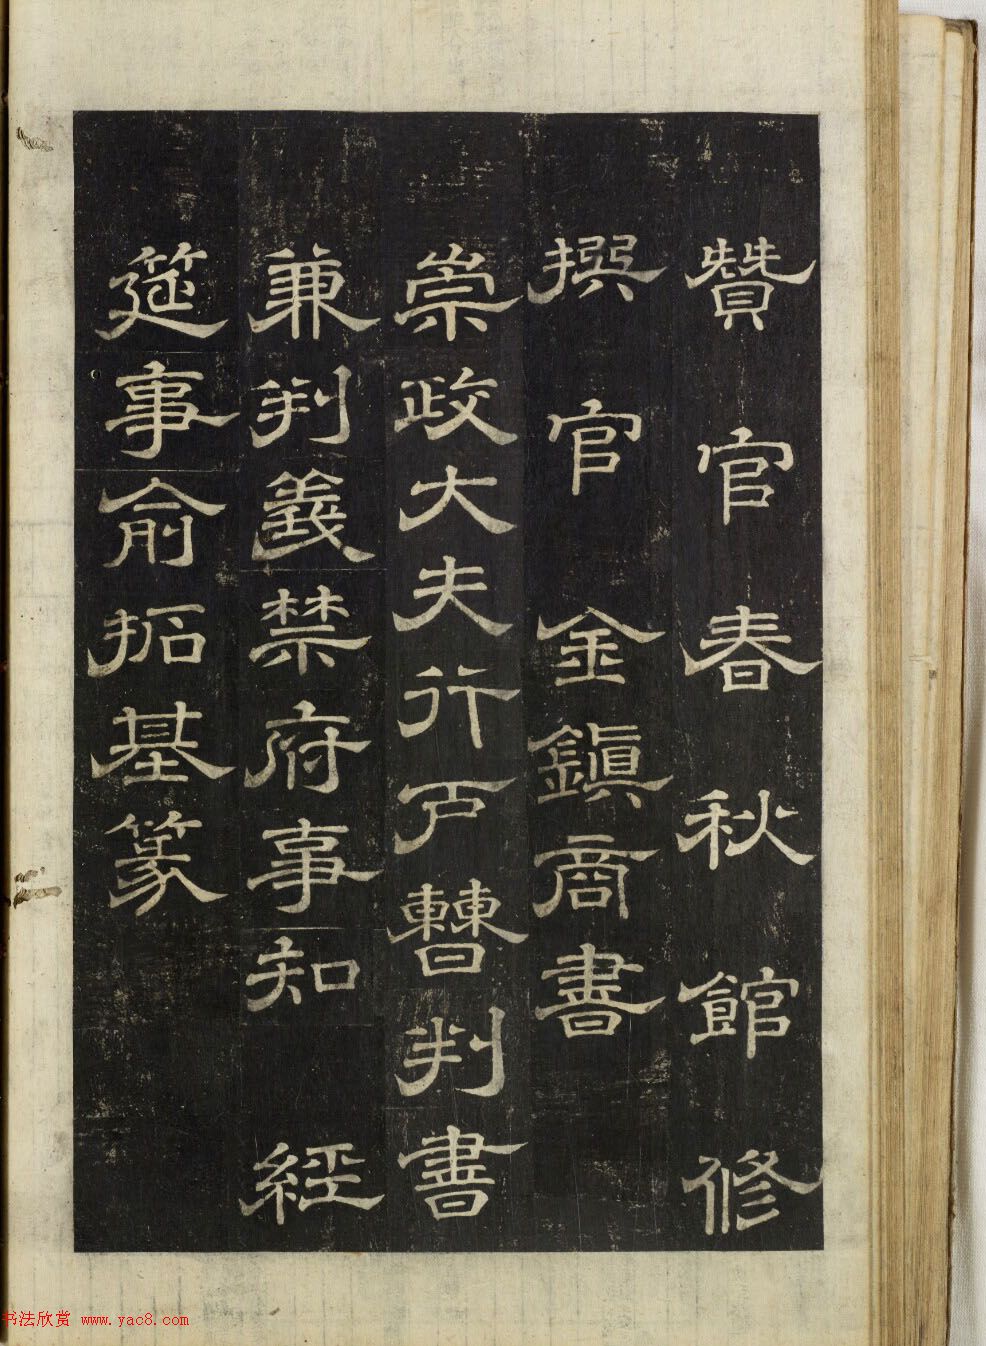 贊官春秋館修
撰官金鎭商書
崇政大夫行戶曹判書
兼判義禁府事知經
筵事俞拓基篆
书法欣赏 www.yac8.com